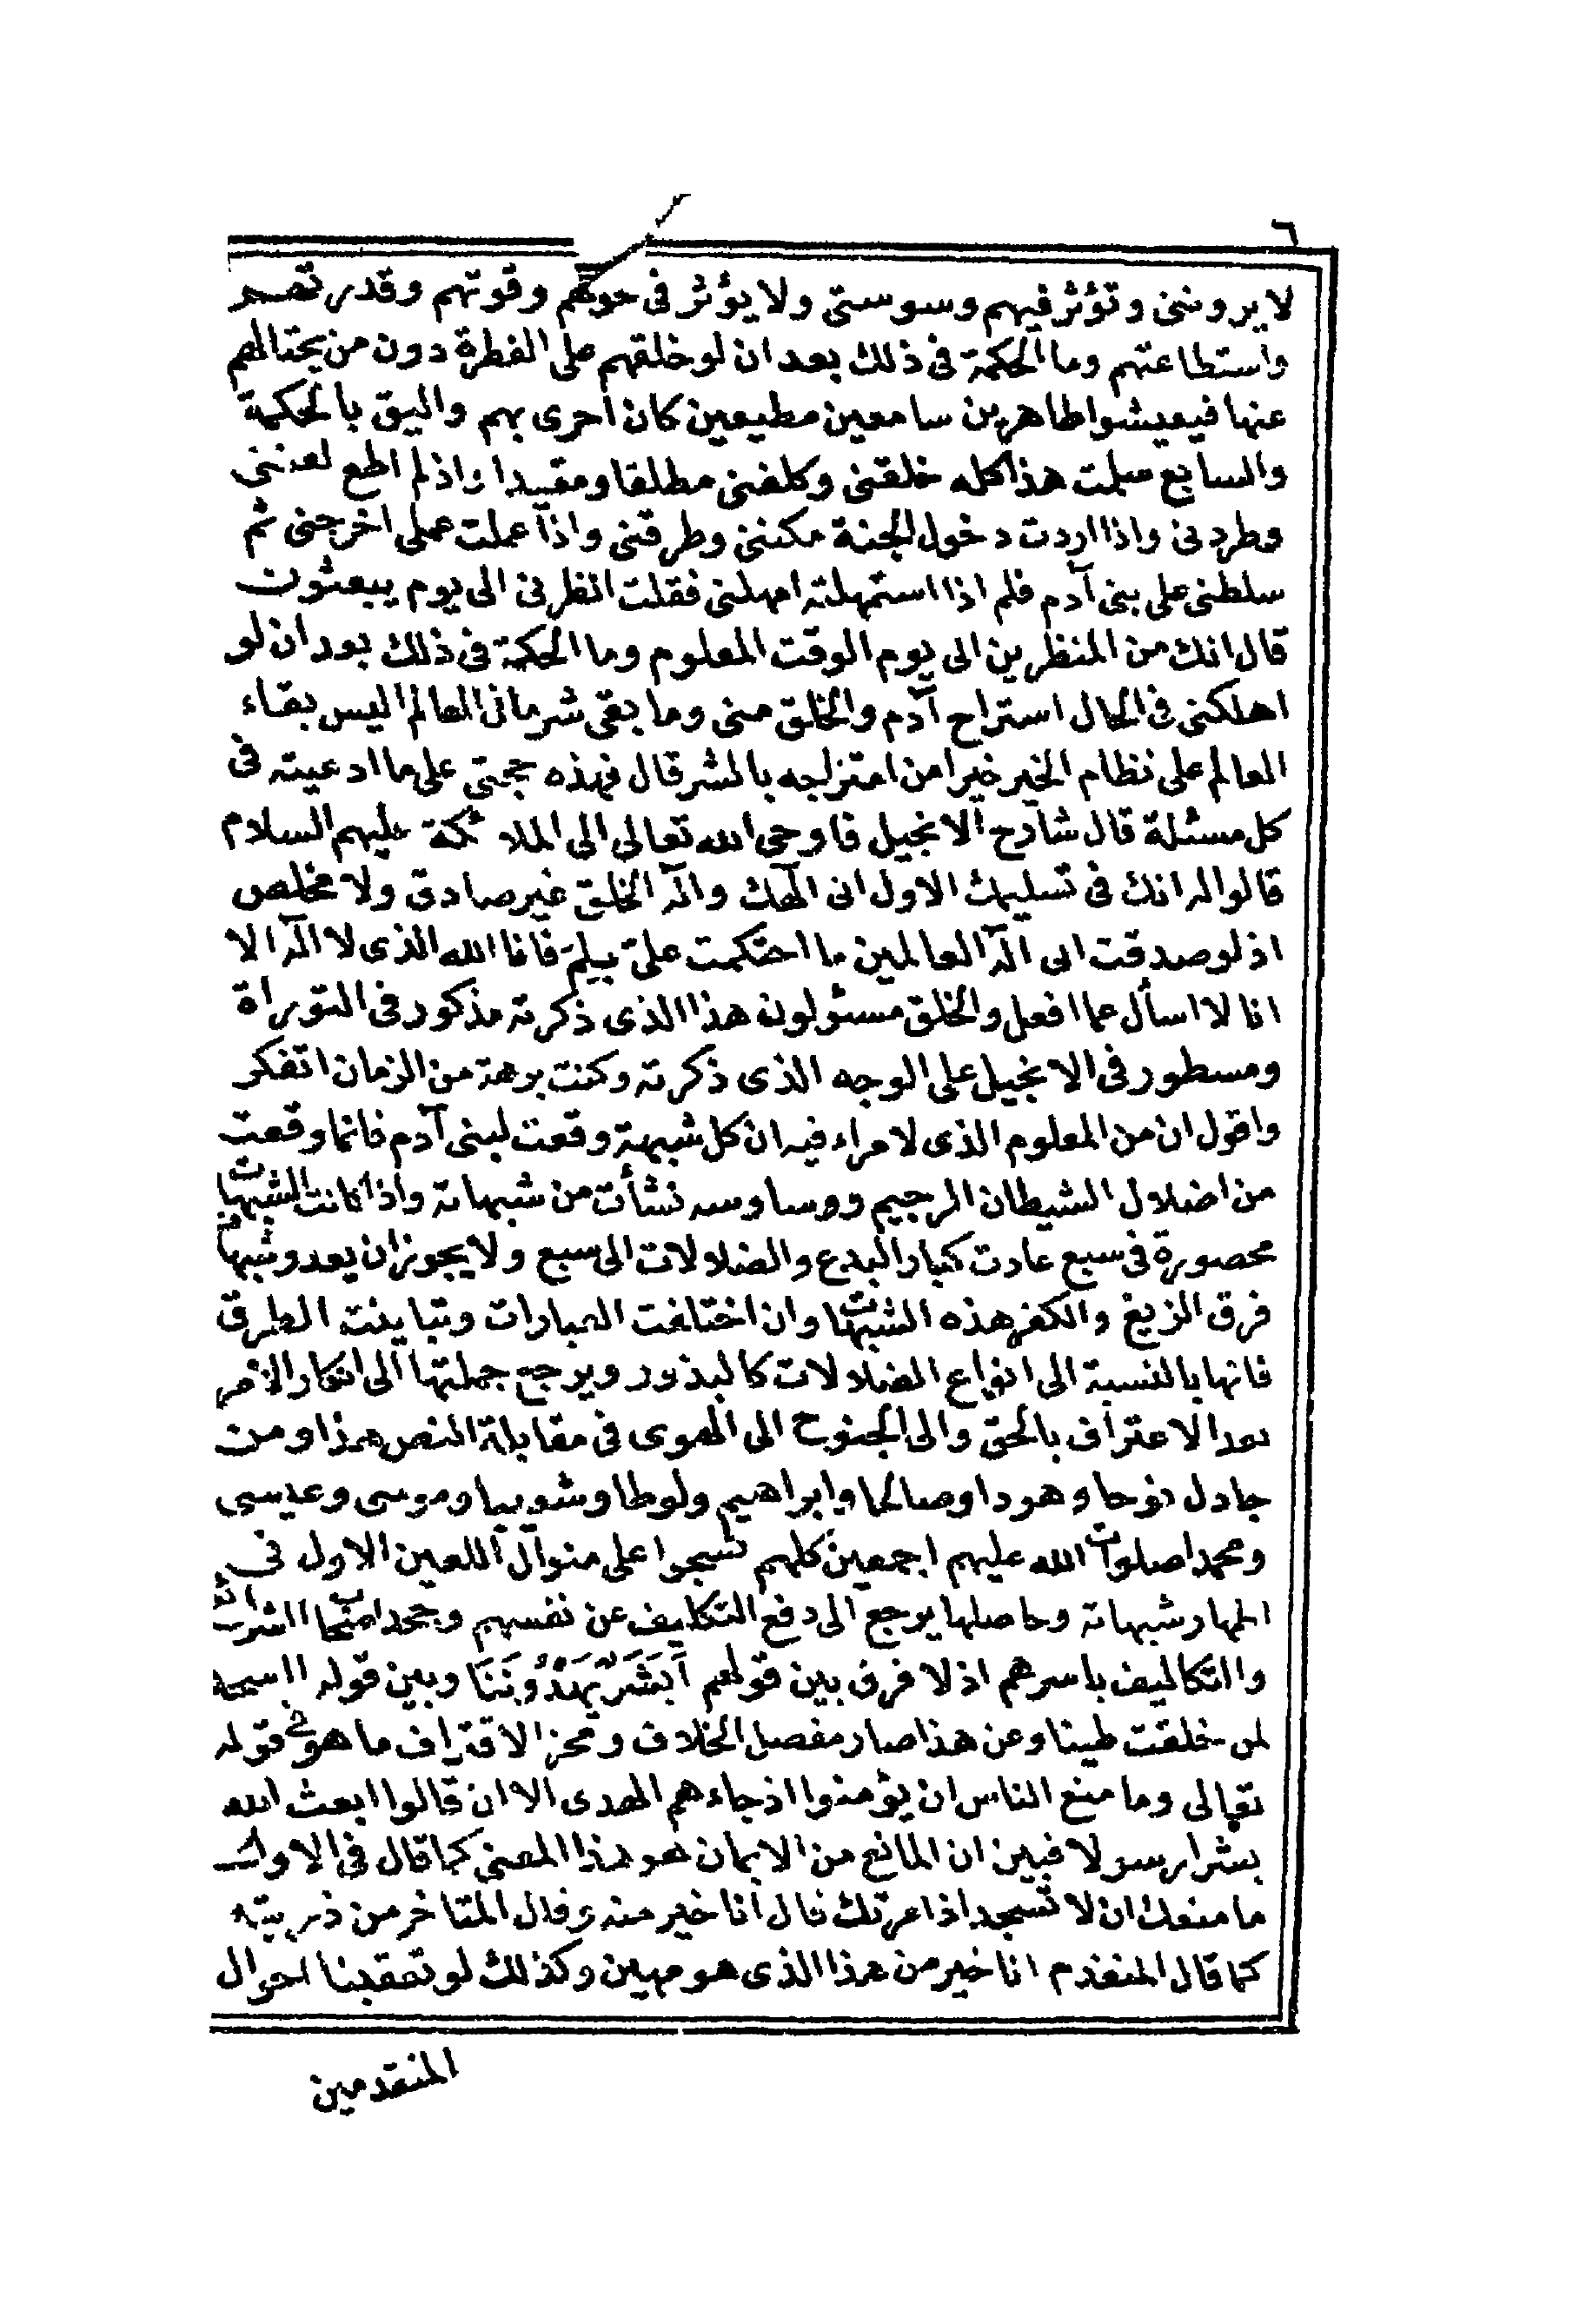 ٦
لا يرونني وتؤثر فيهم وسوستي ولا يؤثر في حولهم وقوتهم وقدرتهم
واستطاعتهم وما الحكمة في ذلك بعد ان لو خلقهم على الفطرة دون من يحتالهم
عنها فيعيشوا طاهرين سامعين مطيعين كان احرى بهم واليق بالحكمة
والسابع سلمت هذا كله خلقني وكلفني مطلقا ومقيدا واذ لم اطع لعنني
وطردني واذا اردت دخول الجنة مكنني وطرقني واذا عملت عملي اخرجني ثم
سلطني على بني آدم فلم اذا استمهلته امهلني فقلت انظرني الى يوم يبعثون
قال انك من المنظرين الى يوم الوقت المعلوم وما الحكمة في ذلك بعد ان لو
اهلكني في الحال استراح آدم والخلق مني وما بقي شر ما في العالم اليس بقاء
العالم على نظام الخير خيرا من امتزاجه بالشر قال فهذه حجتي على ما ادعيته في
كل مسئلة قال شارح الانجيل فاوحى الله تعالى الى الملائكة عليهم السلام
قالوا له انك في تسليمك الاول اني الهك واله الخلق غير صادق ولا مخلص
اذ لو صدقت اني اله العالمين ما احتكمت علي بلم فانا الله الذي لا اله الا
انا لا اسأل عما افعل والخلق مسئولون هذا الذي ذكرته مذكور في التوراة
ومسطور في الانجيل على الوجه الذي ذكرته وكنت برهة من الزمان اتفكر
واقول ان من المعلوم الذي لا مراء فيه ان كل شبهة وقعت لبني آدم فانما وقعت
من اضلال الشيطان الرجيم ووساوسه نشأت من شبهاته واذا كانت الشبهات
محصورة في سبع عادت كبار البدع والضلالات الى سبع ولا يجوز ان يعدو شبهات
فرق الزيغ والكفر هذه الشبهات وان اختلفت العبارات وتباينت الطرق
فانها بالنسبة الى انواع الضلالات كالبذور ويرجع جملتها الى انكار الامر
بعد الاعتراف بالحق والى الجنوح الى الهوى في مقابلة النص هذا ومن
جادل نوحا وهودا وصالحا وابراهيم ولوطا وشعيبا وموسى وعيسى
ومحمدا صلوات الله عليهم اجمعين كلهم نسجوا على منوال اللعين الاول في
اظهار شبهاته وحاصلها يرجع الى دفع التكليف عن نفسهم وجحد اصحاب الشرائع
والتكاليف باسرهم اذ لا فرق بين قولهم أَبَشَرٌ يَهْدُونَنَا وبين قوله ااسجد
لمن خلقت طينا وعن هذا صار مفصل الخلاف ومحز الافتراق ما هو في قوله
تعالى وما منع الناس ان يؤمنوا اذ جاءهم الهدى الا ان قالوا ابعث الله
بشرا رسولا فبين ان المانع من الايمان هو هذا المعنى كما قال في الاول
ما منعك ان لا تسجد اذ امرتك قال انا خير منه وقال المتاخر من ذريته
كما قال المتقدم انا خير من هذا الذي هو مهين وكذلك لو تعقبنا احوال
المتقدمين